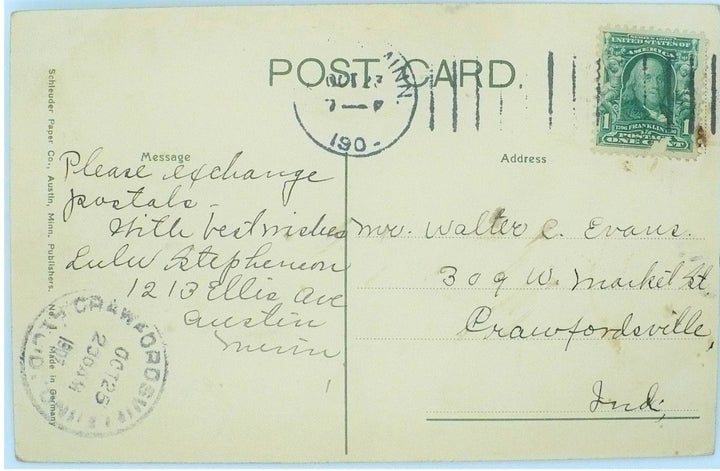 POST CARD.
MINN.
OCT 23
7 — P
190-
SERIES 1902
UNITED STATES OF
AMERICA
1 FRANKLIN 1
POSTAGE
ONE CENT
Message
Address
Please exchange
postals -
With best wishes
Lulu Stephenson
1213 Ellis Ave
Austin
Minn
Mr. Walter C. Evans.
309 W. Market St.
Crawfordsville,
Ind.
Schleuder Paper Co., Austin, Minn. Publishers.
Made in Germany
CRAWFORDSVILLE, IND.
OCT 25
2 30 AM
REC'D.